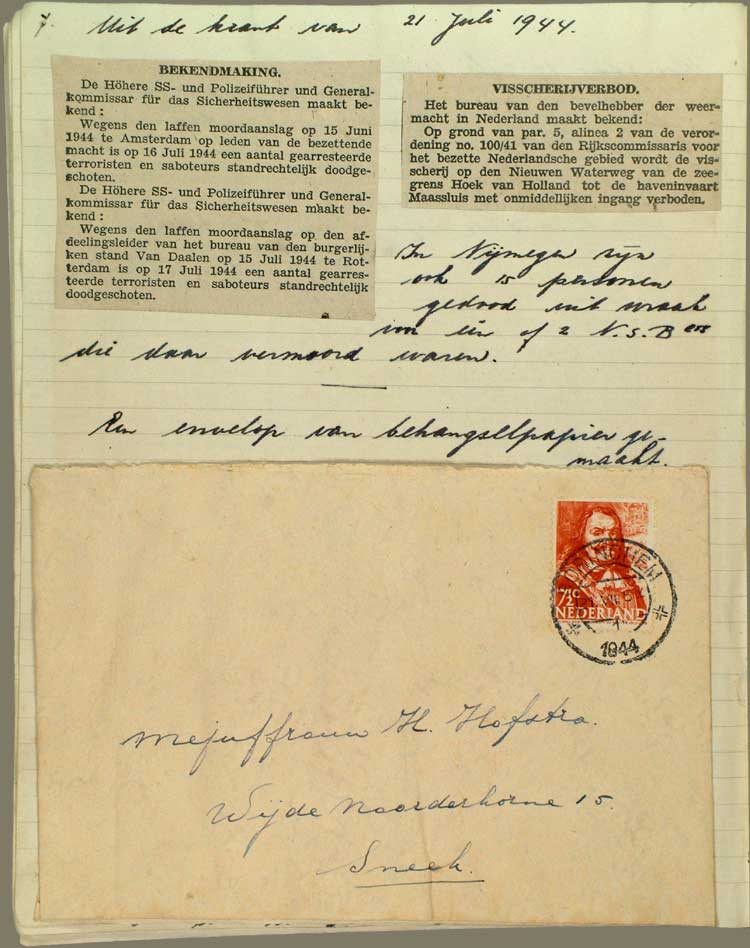 Uit de krant van 21 Juli 1944.
BEKENDMAKING.
De Höhere SS- und Polizeiführer und General-
kommissar für das Sicherheitswesen maakt be-
kend :
Wegens den laffen moordaanslag op 15 Juni
1944 te Amsterdam op leden van de bezettende
macht is op 16 Juli 1944 een aantal gearresteerde
terroristen en saboteurs standrechtelijk doodge-
schoten.
De Höhere SS- und Polizeiführer und General-
kommissar für das Sicherheitswesen maakt be-
kend :
Wegens den laffen moordaanslag op den af-
deelingsleider van het bureau van den burgerlij-
ken stand Van Daalen op 15 Juli 1944 te Rot-
terdam is op 17 Juli 1944 een aantal gearres-
teerde terroristen en saboteurs standrechtelijk
doodgeschoten.
VISSCHERIJVERBOD.
Het bureau van den bevelhebber der weer-
macht in Nederland maakt bekend:
Op grond van par. 5, alinea 2 van de veror-
dening no. 100/41 van den Rijkscommissaris voor
het bezette Nederlandsche gebied wordt de vis-
scherij op den Nieuwen Waterweg van de zee-
grens Hoek van Holland tot de haveninvaart
Maassluis met onmiddellijken ingang verboden.
In Nijmegen zijn
ook 15 personen
gedood uit wraak
voor één of 2 N.S.B ers
die daar vermoord waren.
Een envelop van behangselpapier ge-
maakt.
7½ c
NEDERLAND
1
1944
Mejuffrouw H. Hofstra.
Wijde Noorderhorne 15.
Sneek.